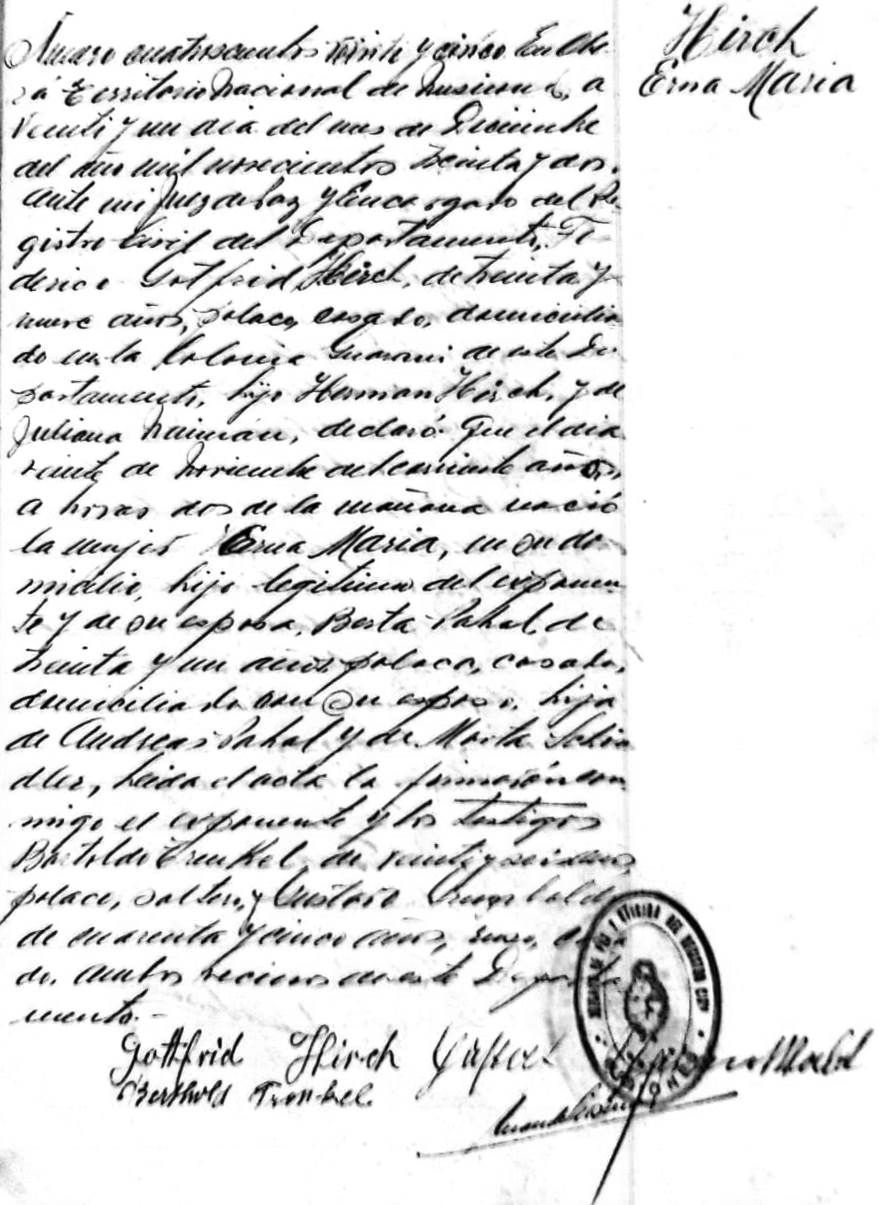 Hirch
Erna Maria
Número cuatrocientos veinte y cinco. En Obe
rá Territorio Nacional de Misiones, a
veinti y un dia del mes de Diciembre
del año mil novecientos treinta y dos.
ante mi Juez de Paz y Encargado del Re
gistro Civil del Departamento, Fe
derico Gotfrid Hirch, de treinta y
nueve años, polaco, casado, domicilia
do en la Colonia Guarani de este De
partamento, hijo Herman Hirch, y de
Juliana Naiman, declaró: Que el dia
veinte de Noviembre del corriente año,
a horas dos de la mañana nació
la mujer Erna Maria, en su do
micilio, hijo legitimo del exponen
te y de su esposa, Berta Pahal, de
treinta y un años polaca, casada,
domiciliada con su esposo, hija
de Andreas Pahal y de Marta Schin
dler, Leida el acta la firmarón con
migo el exponente y los testigos
Bertoldo Trenkel, de veinti y seis años
polaco, soltero, y Gustavo
de cuarenta y cinco años, ruso,
do. Ambos vecinos de este Departa
mento.-
Gottfrid Hirch
Berthold Trenkel